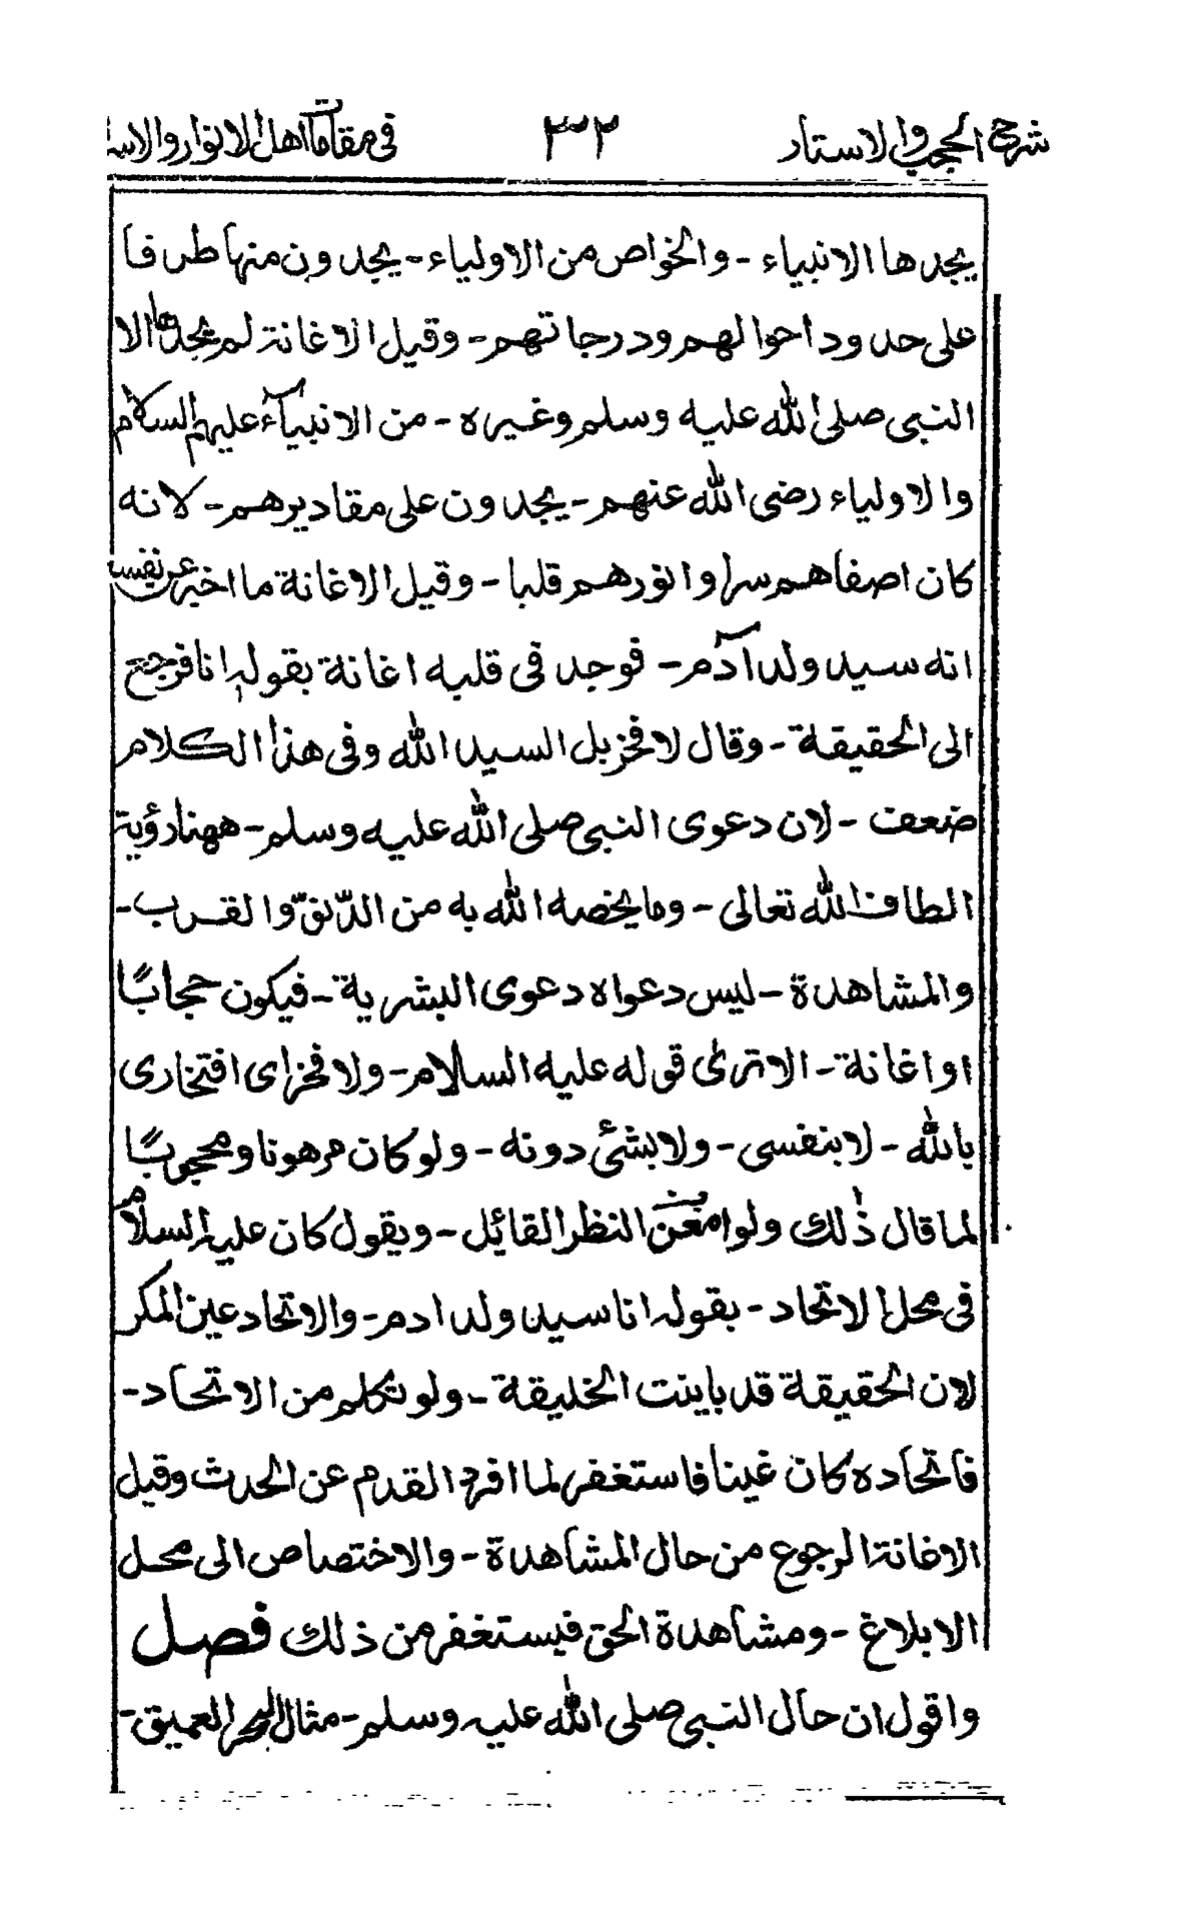 شرح الحجب والاستار ٣٢ في مقامات اهل الانوار والاسـ
يجدها الانبياء - والخواص من الاولياء - يجدون منها طرفا
على حدود احوالهم ودرجاتهم - وقيل الاغانة لم يجدها الا
النبى صلى الله عليه وسلم وغيره - من الانبياء عليهم السلام
والاولياء رضى الله عنهم - يجدون على مقاديرهم - لانه
كان اصفاهم سرا وانورهم قلبا - وقيل الاغانة ما اخبر عن نفسه
انه سيد ولد آدم - فوجد فى قلبه اغانة بقوله انا فرجع
الى الحقيقة - وقال لا فخر بل السيد الله وفى هذا الكلام
ضعف - لان دعوى النبى صلى الله عليه وسلم - ههنا رؤية
الطاف الله تعالى - وما يخصه الله به من الدّنوّ والقرب -
والمشاهدة - ليس دعواه دعوى البشرية - فيكون حجابًا
او اغانة - الا ترىٰ قوله عليه السلام - ولا فخر اى افتخارى
بالله - لا بنفسى - ولا بشئ دونه - ولو كان مرهونا ومحجوبًا
لما قال ذٰلك ولو امعن النظر القائل - ويقول كان عليه السلام
فى محل الاتحاد - بقوله انا سيد ولد ادم - والاتحاد عين المكر
لان الحقيقة قد باينت الخليقة - ولو تكلم من الاتحاد -
فاتحاده كان غينا فاستغفر لما افرد القدم عن الحدث وقيل
الاغانة الرجوع من حال المشاهدة - والاختصاص الى محل
الابلاغ - ومشاهدة الحق فيستغفر من ذلك فصل
واقول ان حال النبى صلى الله عليه وسلم - مثال البحر العميق -